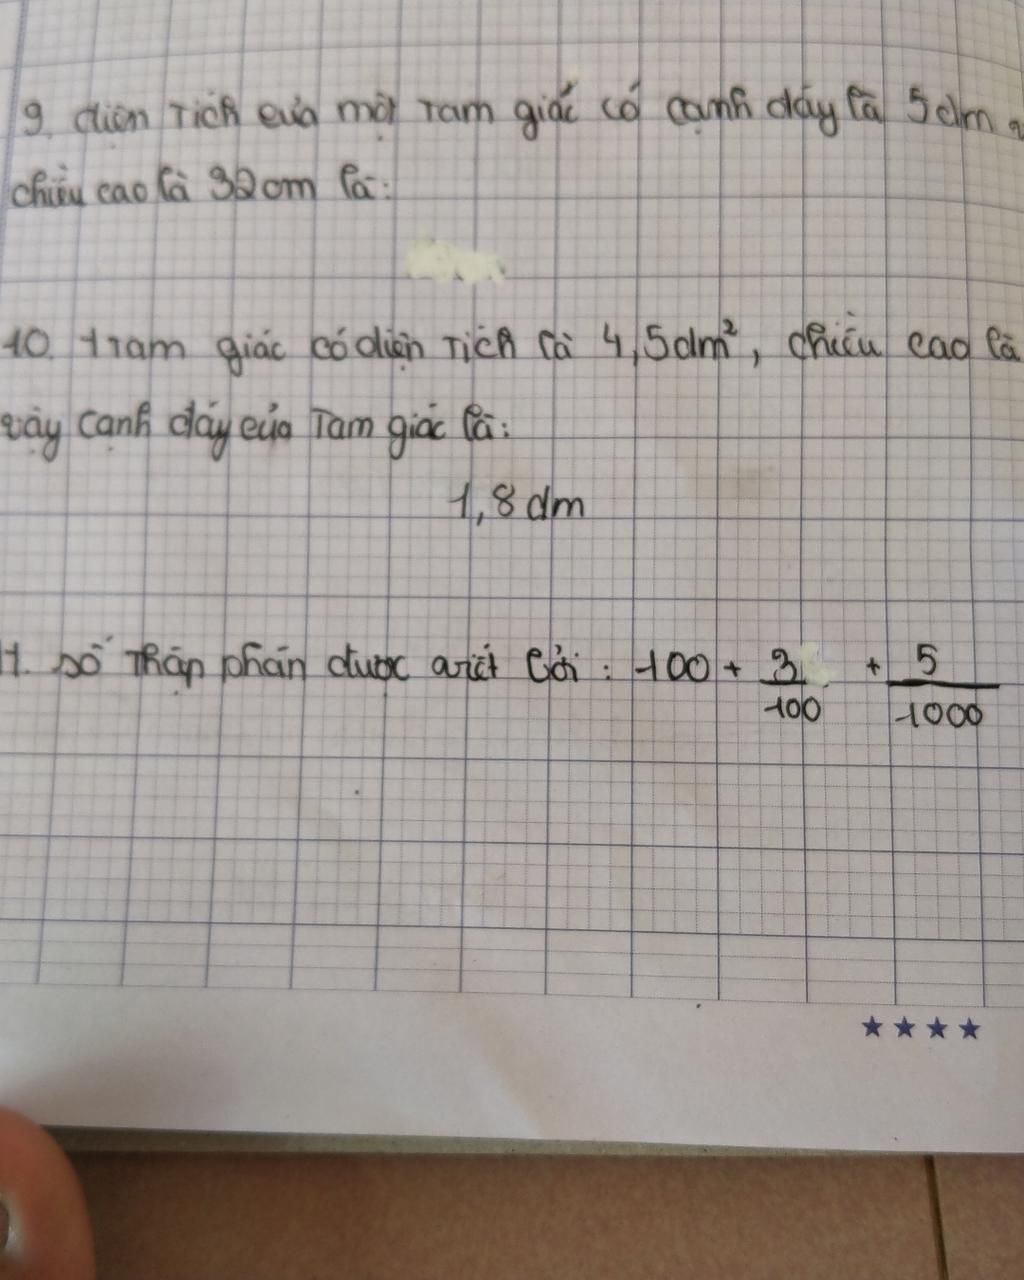 9. diện tích của một tam giác có cạnh đáy là 5dm
chiều cao là 32cm là:
10. tram giác có diện tích là 4,5dm², chiều cao là
vậy cạnh đáy của Tam giác là:
1,8 dm
11. số thập phân được viết bởi : 100 + 3/100 + 5/1000